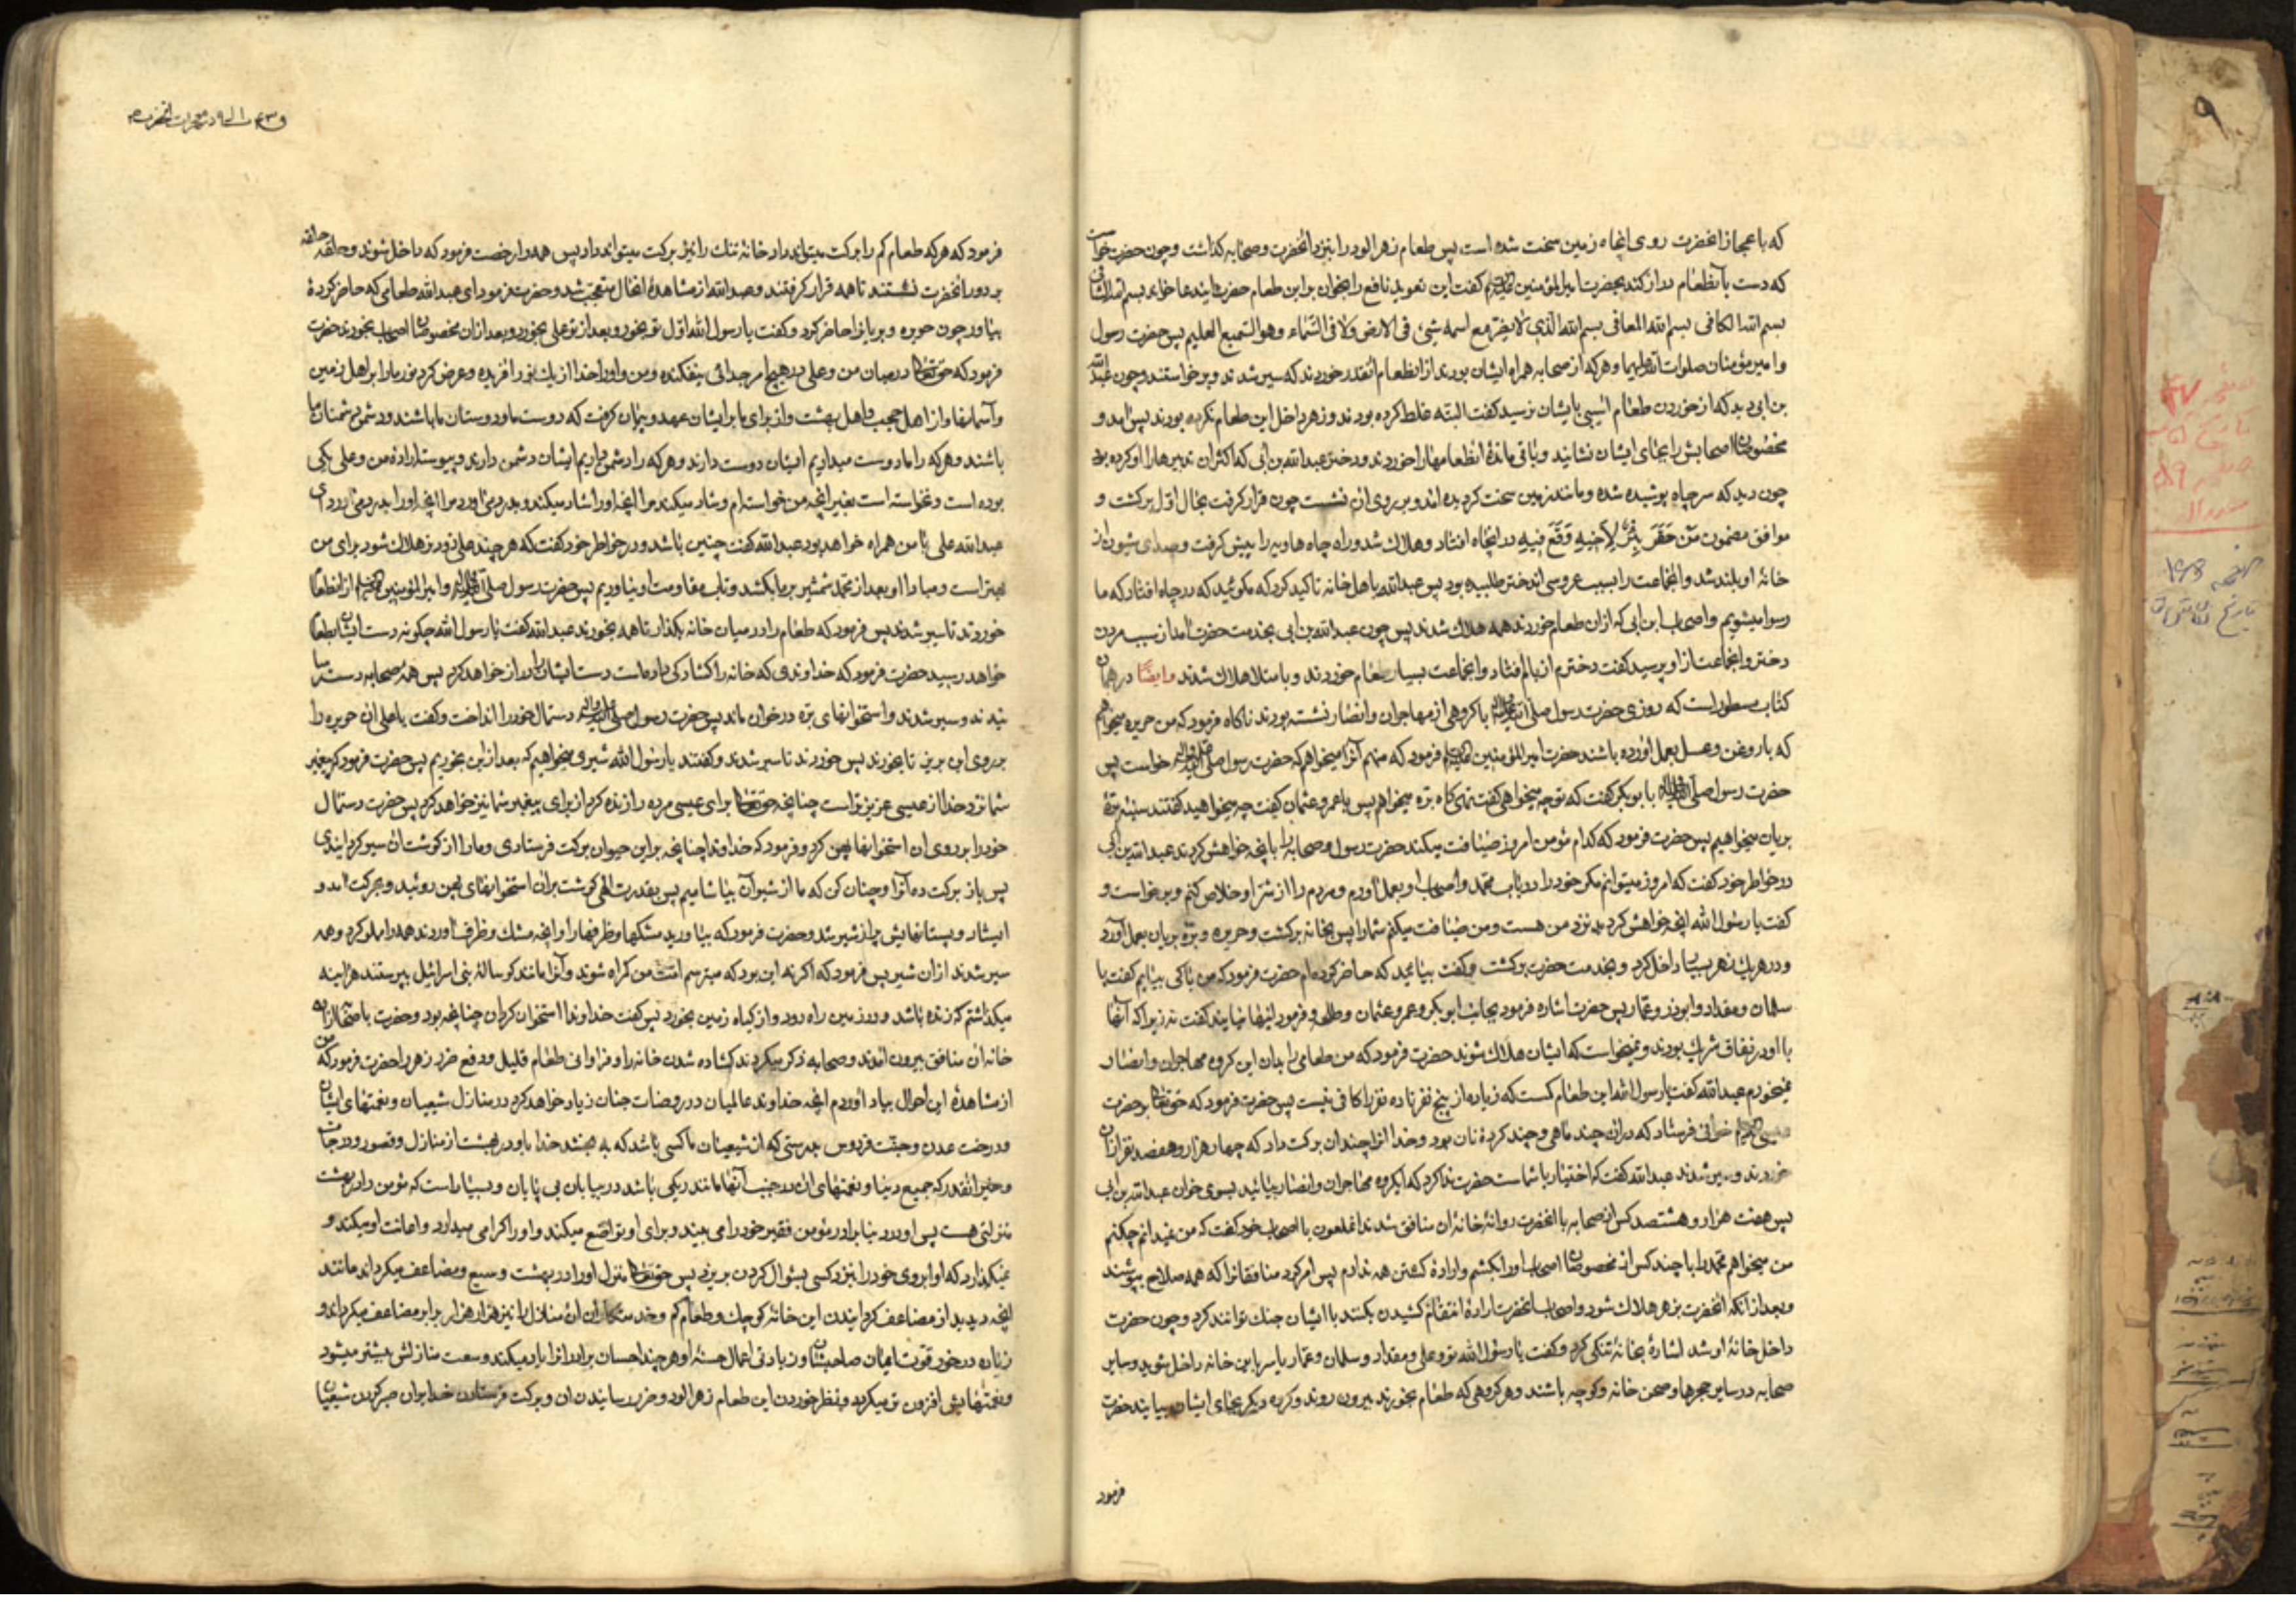 که باعجاز انحضرت روی انچاه زمین سخت شده است پس طعام زهرالود را بنزد انحضرت و صحابه کذاشت و چون حضرت خواست
که دست بآنطعام دراز کند بحضرت امیرالمؤمنین کفت این تعوید نافع را بخوان بر این طعام حضرت این دعا خواند بسم الله الشافی
بسم الله الکافی بسم الله المعافی بسم الله الذی لا یضر مع اسمه شئ فی الارض ولا فی السماء وهو السمیع العلیم پس حضرت رسول
و امیر مؤمنان صلوات الله علیهما و هرکه از صحابه همراه ایشان بودند از انطعام انقدر خوردند که سیر شدند و برخواستند و چون عبدالله
بن ابی دید که از خوردن طعام اسیبی بایشان نرسید کفت البته غلط کرده بودند و زهر داخل این طعام نکرده بودند پس امد و
مخصوصان اصحابش را بجای ایشان نشانید و باقی ماندهٔ انطعامها را خوردند و دختر عبدالله بن ابی که اکثر ان تدبیرها را او کرده بود
چون دید که سر چاه پوشیده شده و مانند زمین سخت کردیده امد و بر روی ان نشست چون قرار کرفت بحال اول برکشت و
موافق مضمون مَنْ حَفَرَ بِئْرً لِاَخِیهِ وَقَعَ فِیهِ در انچاه افتاد و هلاک شد و راه چاه هاویه را پیش کرفت و صدای شیون از
خانهٔ او بلند شد و انجماعت را بسبب عروسی اندختر طلبیده بود پس عبدالله باهل خانه تاکید کرد که مکوئید که در چاه افتاد که ما
رسوا میشویم و اصحاب ابن ابی که ازان طعام خوردند همه هلاک شدند پس چون عبدالله بن ابی بخدمت حضرت امد از سبب مردن
دختر و انجماعت از او پرسید کفت دخترم از بام افتاد و انجماعت بسیار طعام خوردند و بامتلا هلاک شدند وایضًا در همان
کتاب مسطور است که روزی حضرت رسول صلی الله علیه واله با کروهی از مهاجران و انصار نشسته بودند ناکاه فرمود که من حریره میخواهم
که با روغن و عسل بعمل اورده باشند حضرت امیرالمؤمنین فرمود که منهم آنرا میخواهم که حضرت رسول صلی الله علیه واله خواست پس
حضرت رسول صلی الله علیه واله با ابوبکر کفت که تو چه میخواهی کفت تهی کاه بره میخواهم پس با عمر و عثمان کفت چه میخواهید کفتند سینهٔ برهٔ
بریان میخواهیم پس حضرت فرمود که کدام مؤمن امروز ضیافت میکند حضرت رسول و صحابه را بانچه خواهش کردند عبدالله بن ابی
در خاطر خود کفت که امروز میتوانم مکر خود را در باب محمد و اصحاب او بعمل اورم و مردم را از شر او خلاص کنم و برخواست و
کفت یا رسول الله انچه خواهش کردید نزد من هست و من ضیافت میکنم شما را پس بخانه برکشت و حریره و برهٔ بریان بعمل آورد
و در هر یک زهر بسیار داخل کرد و بخدمت حضرت برکشت و کفت بیائید که حاضر کرده‌ام حضرت فرمود که من با کی بیایم کفت با
سلمان و مقداد و ابوذر و عمار پس حضرت اشاره فرمود بجانب ابوبکر و عمر و عثمان و طلحه و فرمود اینها نیایند کفت نه زیرا که آنها
با او در نفاق شریک بودند و نمیخواست که ایشان هلاک شوند حضرت فرمود که من طعامی را بدون این کروه مهاجران و انصار
نمیخورم عبدالله کفت یا رسول الله این طعام کمست که زیاده از پنج نفر تا ده نفر را کافی نیست پس حضرت فرمود که حقتعالی بر حضرت
عیسی خوانی فرستاد که دران چند ماهی و چند کردهٔ نان بود و خدا انرا چندان برکت داد که چهار هزار و هفصد نفر ازان
خوردند و سیر شدند عبدالله کفت که اختیار با شماست حضرت ندا کرد که ایکروه مهاجران و انصار بیائید بسوی خوان عبدالله بن ابی
پس هفت هزار و هشتصد کس از صحابه با انحضرت روانهٔ خانهٔ ان منافق شدند انملعون با اصحاب خود کفت که من نمیدانم چکنم
من میخواهم محمد را با چند کس از مخصوصان اصحاب او را بکشم و ارادهٔ کشتن همه ندارم پس امر کرد منافقان را که همه سلاح بپوشند
و بعد از انکه انحضرت بزهر هلاک شود و اصحاب انحضرت ارادهٔ انتقام کشیدن بکنند با ایشان جنک توانند کرد و چون حضرت
داخل خانهٔ او شد اشارهٔ بخانهٔ تنکی کرد و کفت یا رسول الله تو و علی و مقداد و سلمان و عمار یاسر باین خانه داخل شوید و سایر
صحابه در سایر حجرها و صحن خانه و کوچه باشند و هر کروهی که طعام بخورند بیرون روند و کروه دیکر بجای ایشان بیایند حضرت
فرمود
فرمود که هرکه طعام کم را برکت میتواند داد خانهٔ تنک را نیز برکت میتواند داد پس همه را رخصت فرمود که داخل شوند و حلقه حلقه
بر دور انحضرت نشستند تا همه قرار کرفتند و عبدالله از مشاهدهٔ انحال متعجب شد و حضرت فرمود ای عبدالله طعامی که حاضر کردهٔ
بیاور چون حریره و بریان را حاضر کرد و کفت یا رسول الله اول تو بخور و بعد از تو علی بخورد و بعد ازان مخصوصان اصحاب بخورند حضرت
فرمود که حقتعالی در میان من و علی در هیچ امر جدائی نیفکنده و من و او را خدا از یک نور افریده و عرض کرد نور ما را بر اهل زمین
و آسمانها و از اهل حجب و اهل بهشت و از برای ما بر ایشان عهد و پیمان کرفت که دوست ما و دوستان ما باشند و دشمن دشمنان ما
باشند و هرکه را ما دوست میداریم ایشان دوست دارند و هرکه را دشمن داریم ایشان دشمن دارند و پیوسته ارادهٔ من و علی یکی
بوده است و نخواسته است بغیر انچه من خواسته‌ام و شاد میکند مرا انچه او را شاد میکند و بدرد میاورد مرا انچه او را بدرد میاورد ای
عبدالله علی با من همراه خواهد بود عبدالله کفت چنین باشد و در خاطر خود کفت که هر چند علی زودتر هلاک شود برای من
بهتر است و مبادا او بعد از محمد شمشیر بر ما بکشد و تاب مقاومت او نیاوریم پس حضرت رسول صلی الله علیه واله و امیرالمؤمنین از انطعام
خوردند تا سیر شدند پس فرمود که طعام را در میان خانه بکذار تا همه بخورند عبدالله کفت یا رسول الله چکونه دست ایشان بطعام
خواهد رسید حضرت فرمود که خداوندی که خانه را کشاد کی داده است دست ایشان را دراز خواهد کرد پس همهٔ صحابه دست رسا
نیدند و سیر شدند و استخوانهای بره در خوان ماند پس حضرت رسول صلی الله علیه واله دستمال خود را انداخت و کفت یا علی ان حریره را
بر روی این بریز تا بخورند پس خوردند تا سیر شدند و کفتند یا رسول الله شیری میخواهیم که بعد ازین بخوریم پس حضرت فرمود که پیغمبر
شما نزد خدا از عیسی عزیزتر است چنانچه حقتعالی برای عیسی مرده را زنده کرد از برای پیغمبر شما نیز خواهد کرد پس حضرت دستمال
خود را بر روی ان استخوانها پهن کرد و فرمود که خداوندا چنانچه بر این حیوان برکت فرستادی و ما را از کوشت ان سیر کردانیدی
پس باز برکت ده آنرا و چنان کن که ما از شیر آن بیاشامیم پس بقدرت الهی کوشت بران استخوانهای پهن روئید و بحرکت امد و
ایستاد و پستانهایش پر از شیر شد و حضرت فرمود که بیاورید مشکها و ظرفها را و انچه مشک و ظرف اوردند همه را مملو کرد و همه
سیر شدند ازان شیر پس فرمود که اکر نه این بود که میترسم امت من کمراه شوند و آنرا مانند کوسالهٔ بنی اسرائیل بپرستند هر اینه
میکذاشتم که زنده باشد و در زمین راه رود و از کیاه زمین بخورد پس کفت خداوندا استخوان کردان چنانچه بود و حضرت با صحابه از
خانهٔ ان منافق بیرون امدند و صحابه ذکر میکردند کشاده شدن خانه را و فراوانی طعام قلیل و دفع ضرر زهر را حضرت فرمود که من
از مشاهدهٔ این احوال بیاد اوردم انچه خداوند عالمیان در روضات جنان زیاد خواهد کرد در منازل شیعیان و نعمتهای ایشان
و درخت عدن و جنت فردوس بدرستی که از شیعیان ما کسی باشد که به بخشد خدا باو در بهشت از منازل و قصور و درجات
و خیر انقدر که جمیع دنیا و نعمتهای ان در جنب آنها مانند ریکی باشد در بیابان بی پایان و بسیار است که مؤمن را در بهشت
منزلتی هست پس او در دنیا برادر مؤمن فقیر خود را می بیند و برای او تواضع میکند و او را کرامی میدارد و اعانت او میکند و
نمیکذارد که او ابروی خود را بنزد کسی بسؤال کردن بریزد پس حقتعالی منزل او را در بهشت وسیع و مضاعف میکرداند مانند
انچه دیدید از مضاعف کردانیدن این خانهٔ کوچک و طعام کم و خدمتکاران ان منازل را نیز هزار هزار برابر مضاعف میکرداند و
زیاده در خور قوت ایمان صاحبان و زیادتی اعمال حسنهٔ او هر چند احسان برادر انرا زیاد میکند وسعت منازلش بیشتر میشود
و نعمتهایش افزون تر میکردد و نظر خوردن این طعام زهرالود و ضرر نرسانیدن ان و برکت فرستادن خدا بران صبر کردن شیعیان